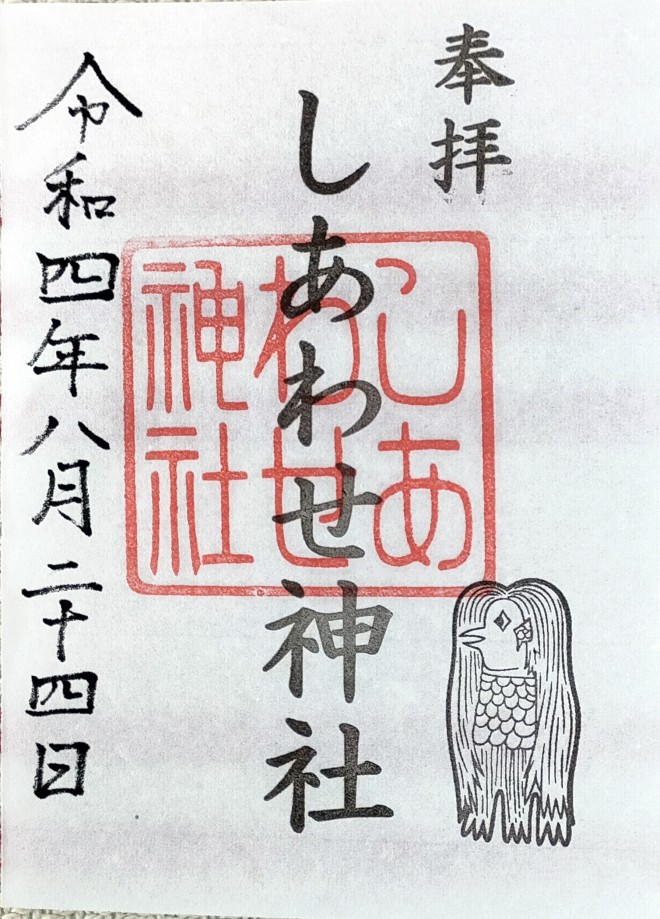 奉拝
しあわせ神社
しあ
わせ
神社
令和四年八月二十四日